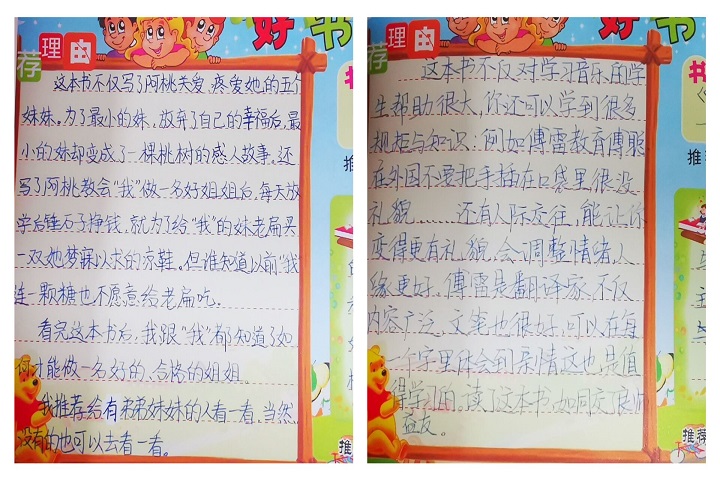 好书
荐理由
这本书不仅写了阿桃关爱、疼爱她的五个
妹妹。为了最小的妹,放弃了自己的幸福后,最
小的妹却变成了一棵桃树的感人故事。还
写了阿桃教会“我”做一名好姐姐后,每天放
学后锤石子挣钱,就为了给“我”的妹老扁买
一双她梦寐以求的凉鞋。但谁知道以前“我”
连一颗糖也不愿意给老扁吃。
看完这本书后,我跟“我”都知道了如
何才能做一名好的、合格的姐姐。
我推荐给有弟弟妹妹的人看一看,当然
没有的也可以去看一看。
推
推荐
好书
荐理由
这本书不仅对学习音乐的学
生帮助很大,你还可以学到很多
规矩与知识:例如傅雷教育傅聪
在外国不要把手插在口袋里很没
礼貌……还有人际交往,能让你
变得更有礼貌,会调整情绪,人
缘更好。傅雷是翻译家,不仅
内容广泛,文笔也很好,可以在每
一个字里体会到亲情这也是值
得学习的。读了这本书,如同交了良师
益友。
书
推
推荐